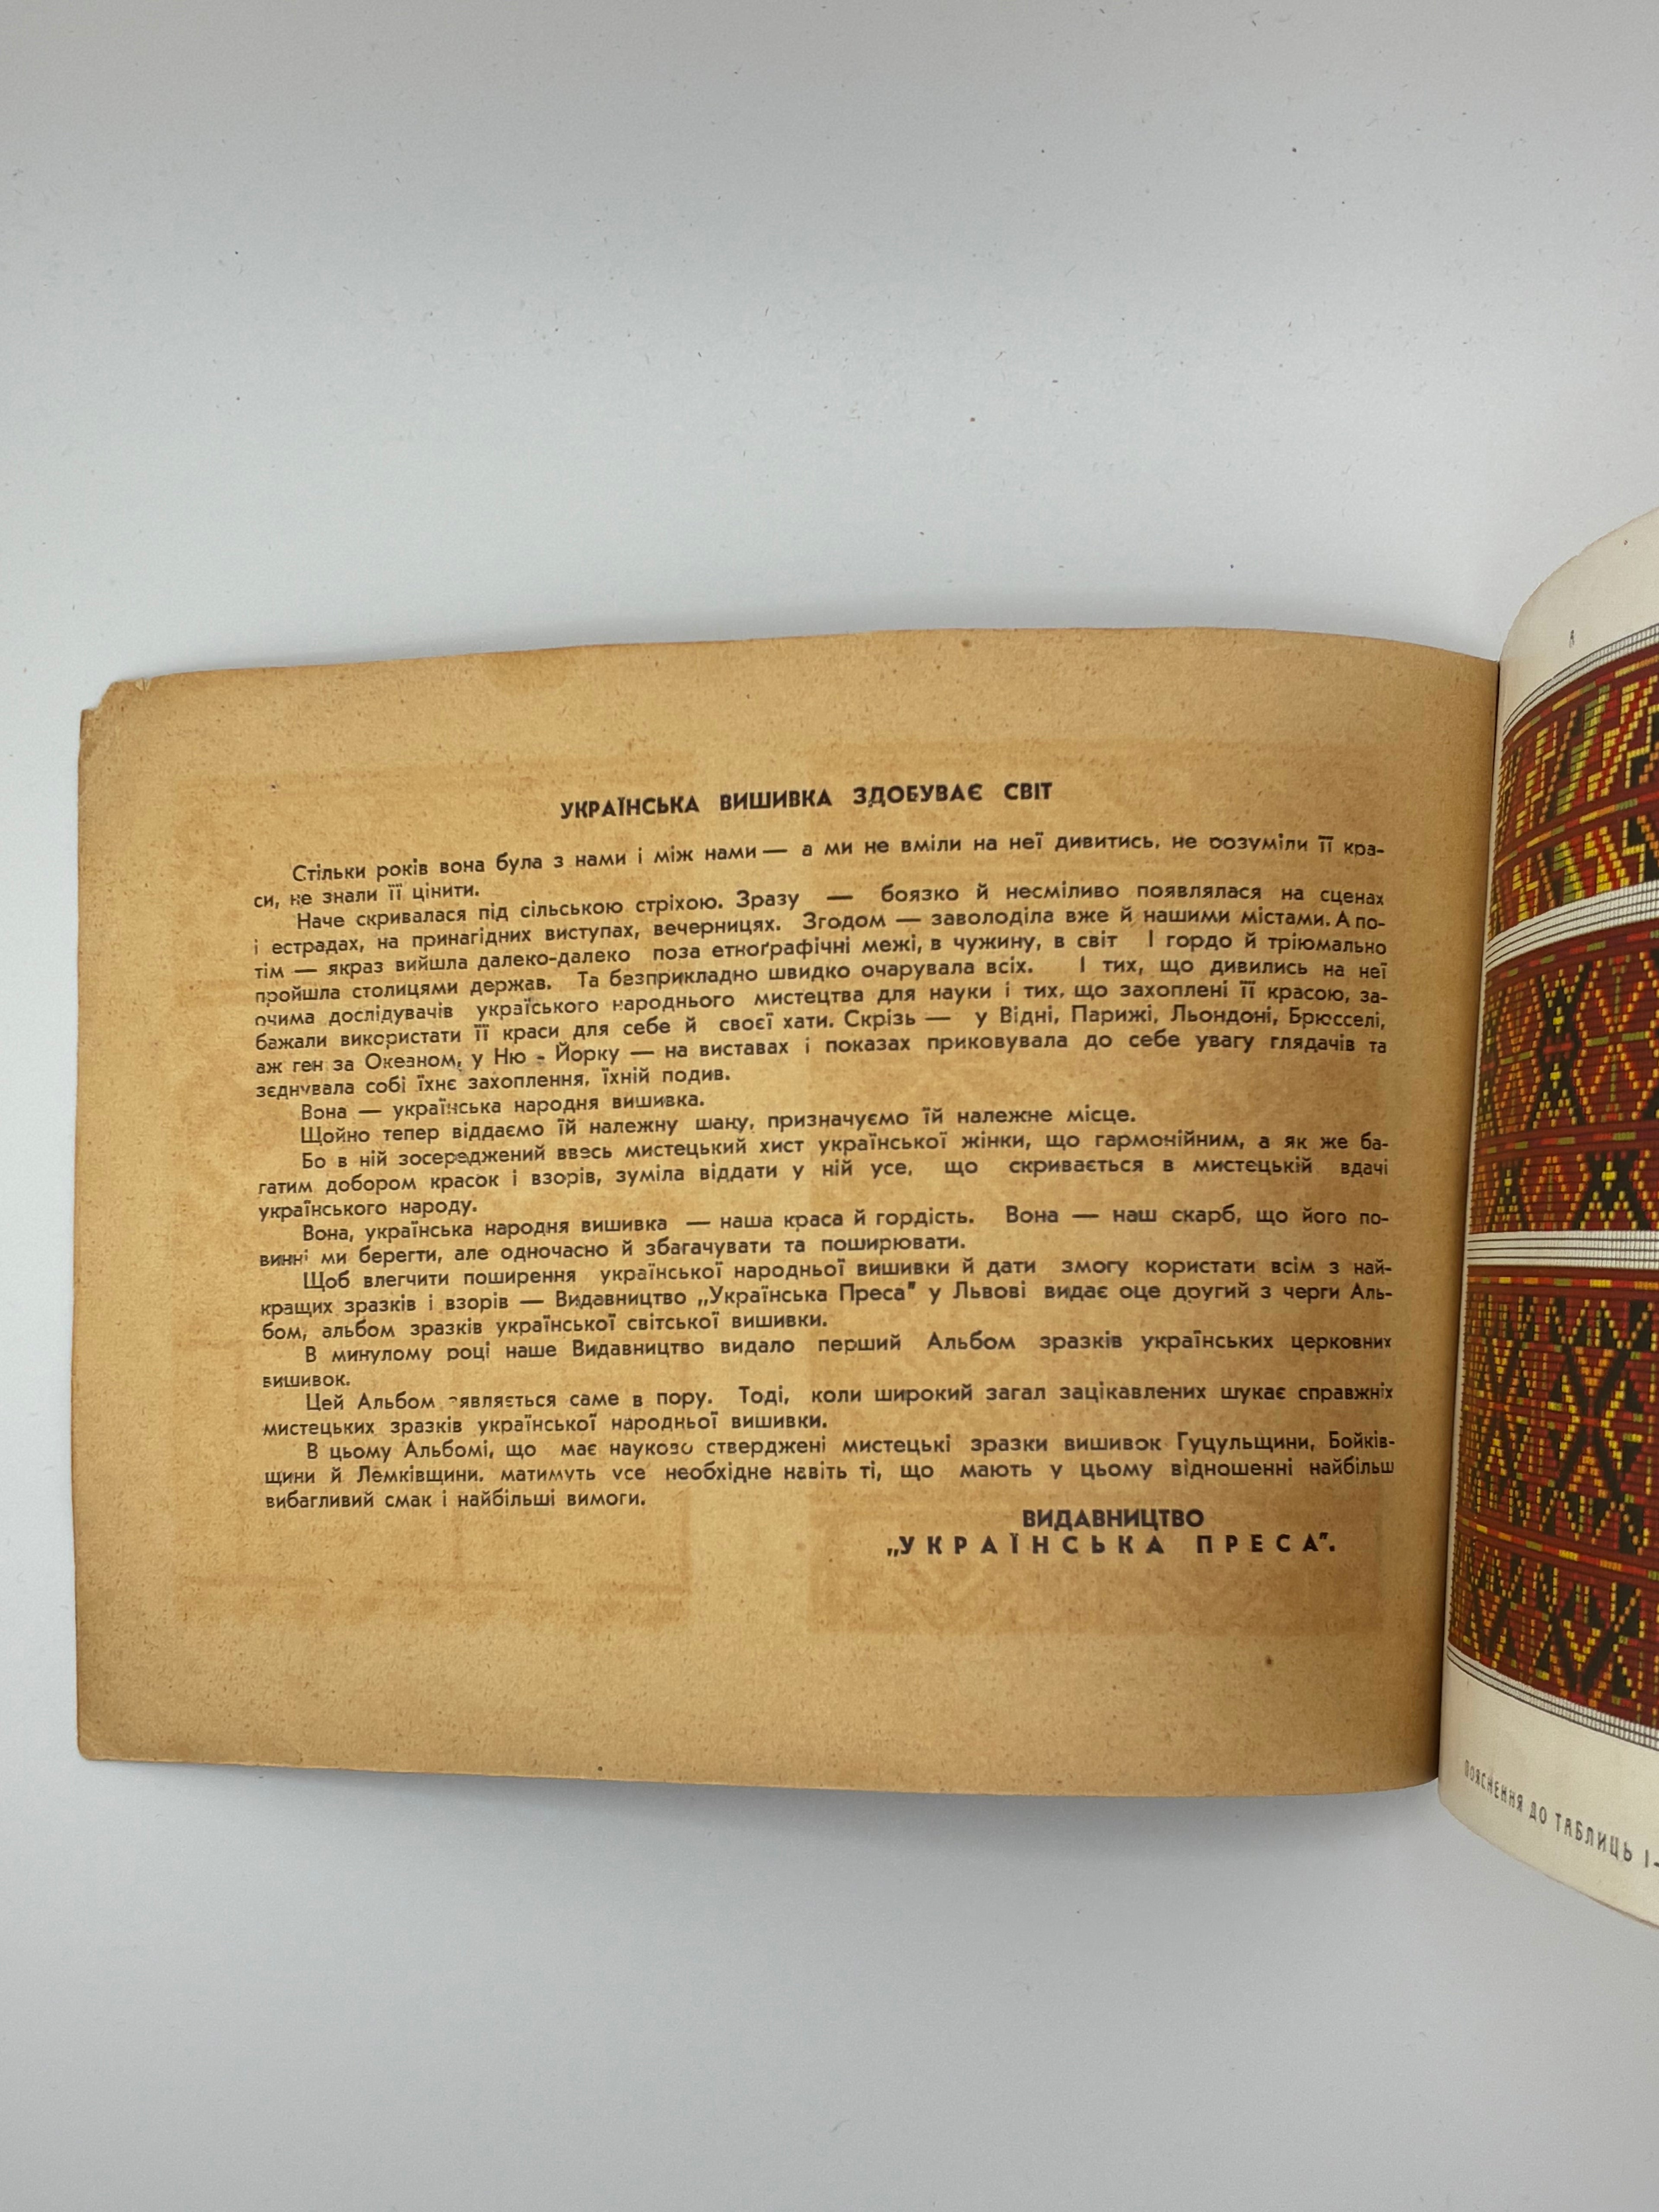 УКРАЇНСЬКА ВИШИВКА ЗДОБУВАЄ СВІТ
Стільки років вона була з нами і між нами — а ми не вміли на неї дивитись, не розуміли її кра-
си, не знали її цінити.
Наче скривалася під сільською стріхою. Зразу — боязко й несміливо появлялася на сценах
і естрадах, на принагідних виступах, вечерницях. Згодом — заволоділа вже й нашими містами. А по-
тім — якраз вийшла далеко-далеко поза етноґрафічні межі, в чужину, в світ І гордо й тріюмально
пройшла столицями держав. Та безприкладно швидко очарувала всіх. І тих, що дивились на неї
очима дослідувачів україського народнього мистецтва для науки і тих, що захоплені її красою, за-
бажали використати її краси для себе й своєї хати. Скрізь — у Відні, Парижі, Льондоні, Брюсселі,
аж ген за Океаном, у Ню - Йорку — на виставах і показах приковувала до себе увагу глядачів та
зєднувала собі їхнє захоплення, їхній подив.
Вона — українська народня вишивка.
Щойно тепер віддаємо їй належну шану, призначуємо їй належне місце.
Бо в ній зосереджений ввесь мистецький хист української жінки, що гармонійним, а як же ба-
гатим добором красок і взорів, зуміла віддати у ній усе, що скривається в мистецькій вдачі
українського народу.
Вона, українська народня вишивка — наша краса й гордість. Вона — наш скарб, що його по-
винні ми берегти, але одночасно й збагачувати та поширювати.
Щоб влегчити поширення української народньої вишивки й дати змогу користати всім з най-
кращих зразків і взорів — Видавництво „Українська Преса" у Львові видає оце другий з черги Аль-
бом, альбом зразків української світської вишивки.
В минулому році наше Видавництво видало перший Альбом зразків українських церковних
вишивок.
Цей Альбом зявляється саме в пору. Тоді, коли широкий загал зацікавлених шукає справжніх
мистецьких зразків української народньої вишивки.
В цьому Альбомі, що має науково стверджені мистецькі зразки вишивок Гуцульщини, Бойків-
щини й Лемківщини, матимуть усе необхідне навіть ті, що мають у цьому відношенні найбільш
вибагливий смак і найбільші вимоги.
ВИДАВНИЦТВО
„УКРАЇНСЬКА ПРЕСА".
8
ПОЯСНЕННЯ ДО ТАБЛИЦЬ I-